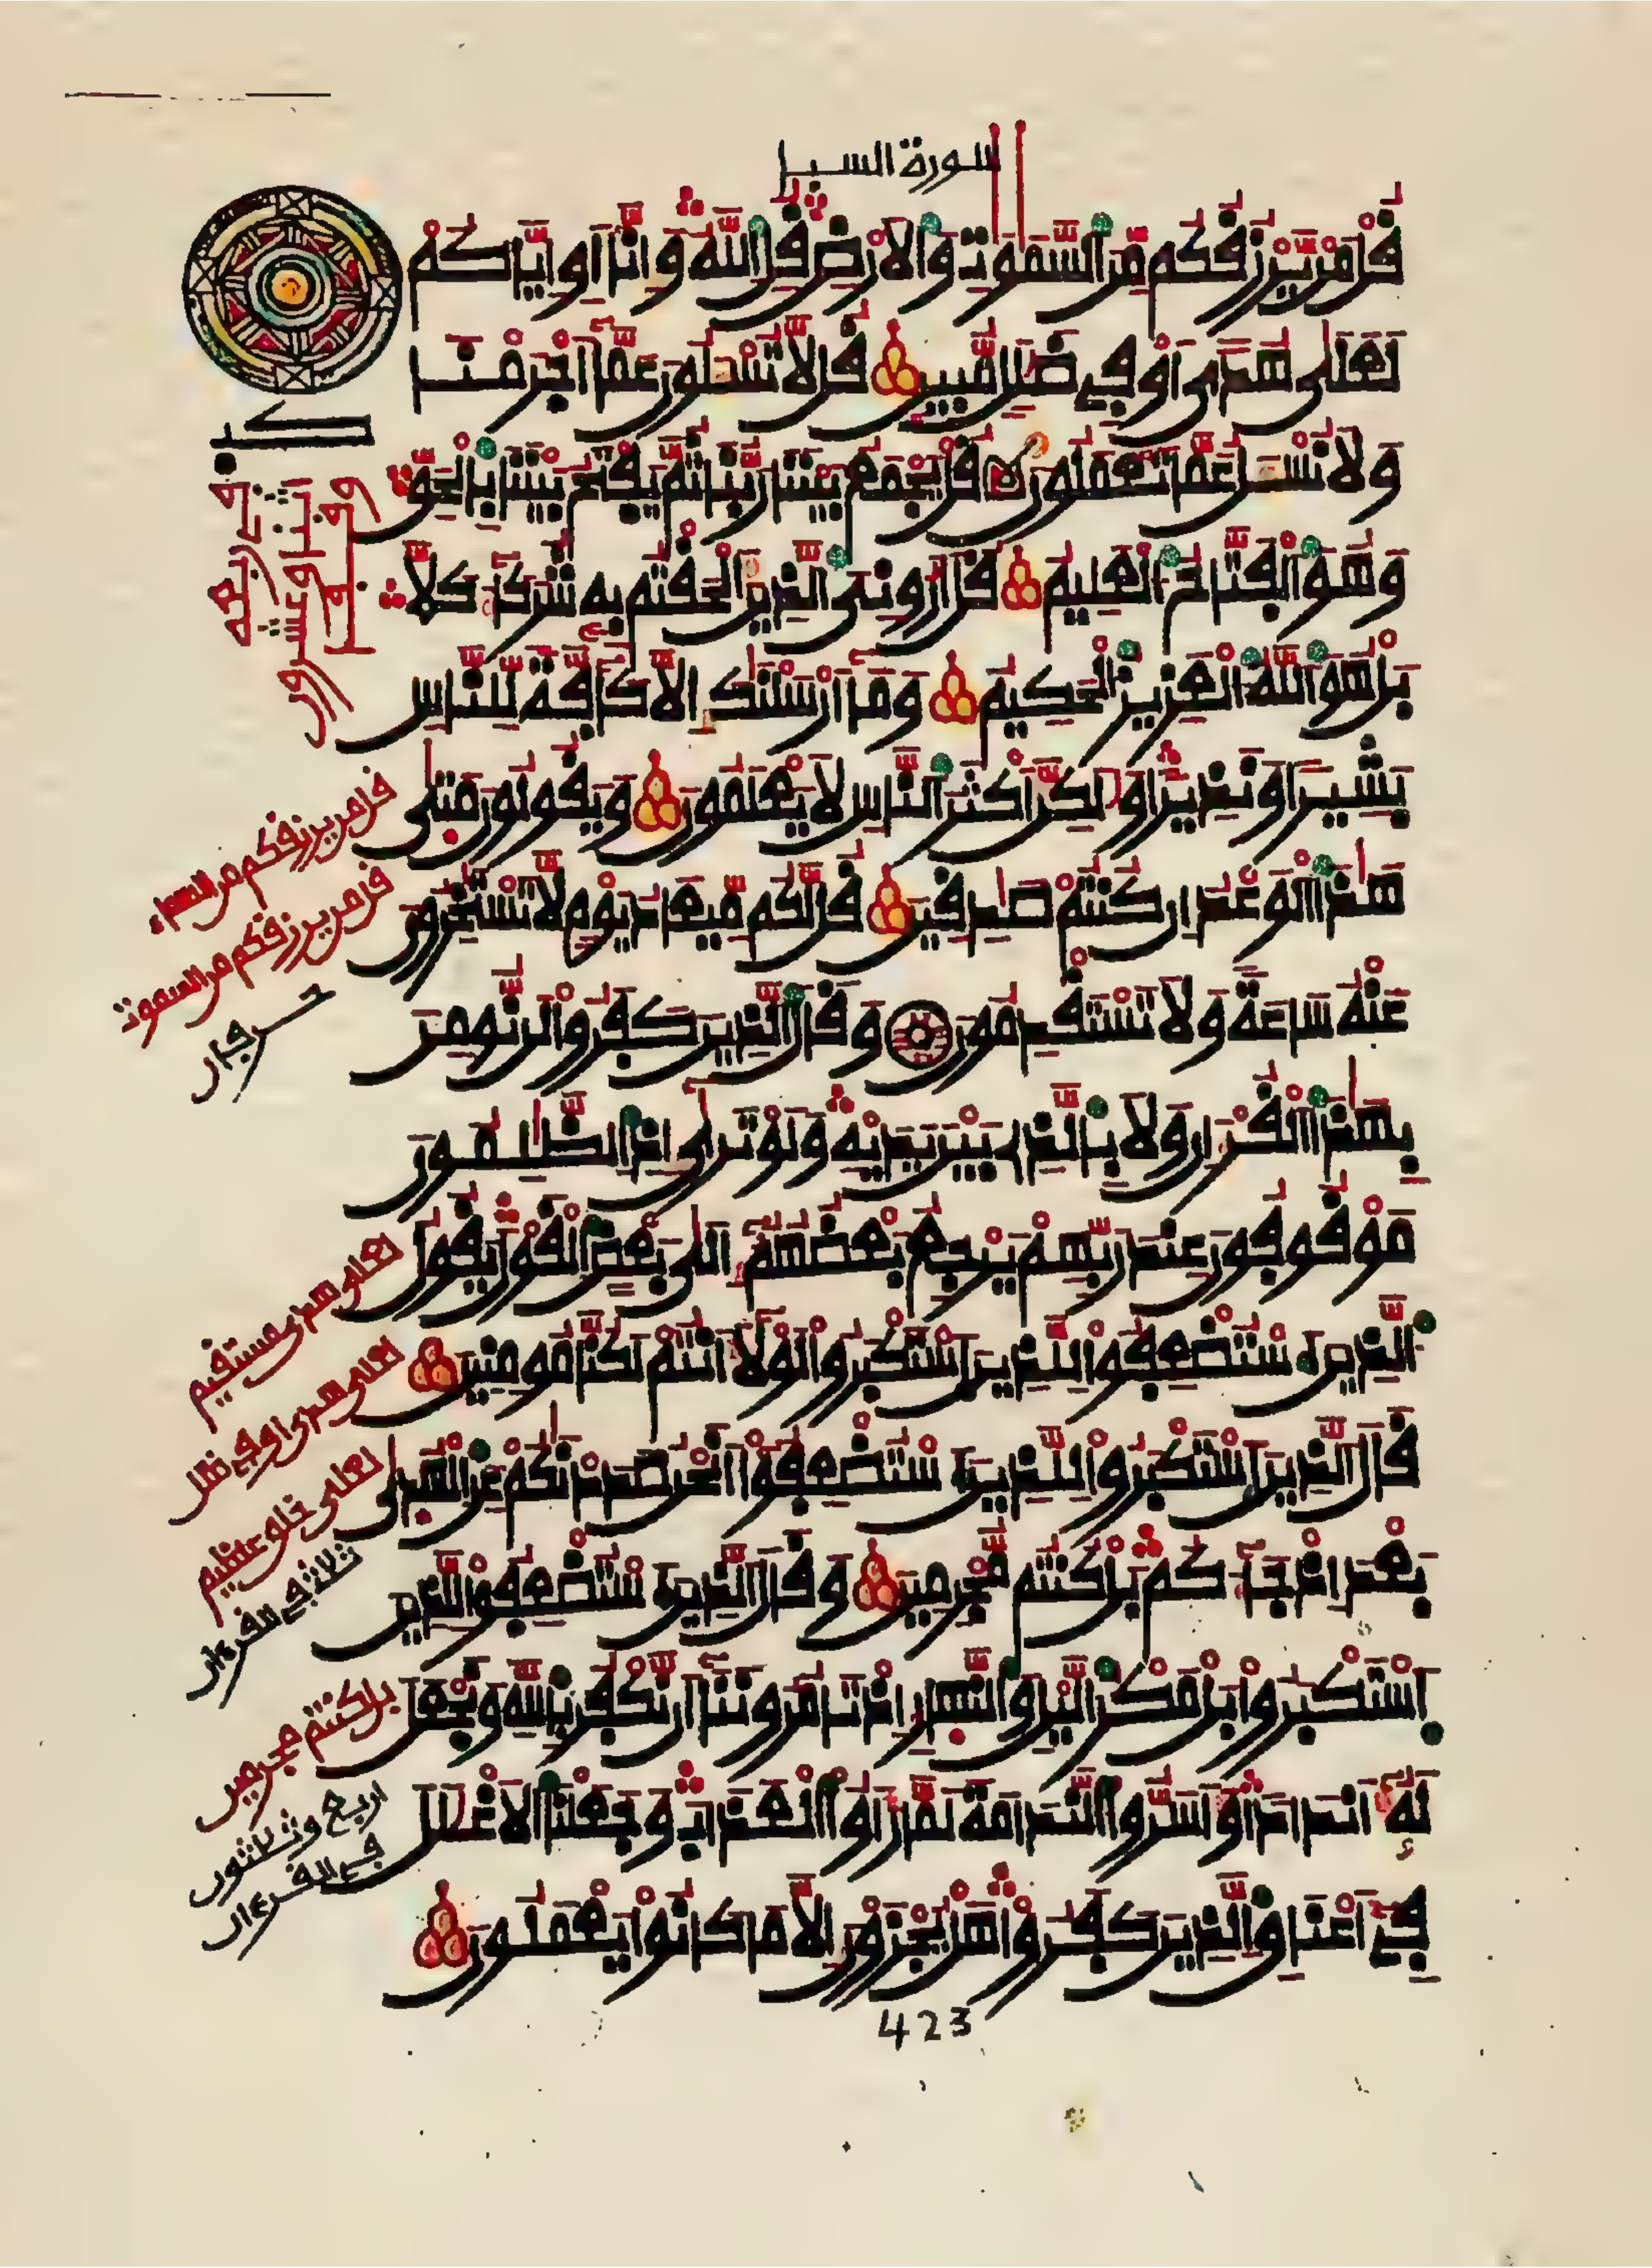 سورة السبإ
قُلْ مَنْ يَّرْزُقُكُم مِّنَ السَّمٰوٰتِ وَالْاَرْضِ قُلِ اللَّهُ وَإِنَّا أَوِ ايَّاكُمْ
لَعَلٰى هُدًى اَوْ فِے ضَلٰلٍ مُّبِينٍ قُل لَّا تُسْـَٔلُونَ عَمَّا أَجْرَمْنَا
وَلَا نُسْـَٔلُ عَمَّا تَعْمَلُونَ قُلْ يَجْمَعُ بَيْنَنَا رَبُّنَا ثُمَّ يَفْتَحُ بَيْنَنَا بِالْحَقِّ
وَهُوَ الْفَتَّاحُ الْعَلِيمُ قُلَ ارُونِيَ الَّذِينَ أَلْحَقْتُم بِهِ شُرَكَآءَ كَلَّا
بَلْ هُوَ اللَّهُ الْعَزِيزُ الْحَكِيمُ وَمَآ أَرْسَلْنٰكَ إِلَّا كَآفَّةً لِّلنَّاسِ
بَشِيرًا وَنَذِيرًا وَلٰكِنَّ أَكْثَرَ النَّاسِ لَا يَعْلَمُونَ وَيَقُولُونَ مَتٰى
هٰذَا الْوَعْدُ إِن كُنتُمْ صٰدِقِينَ قُل لَّكُم مِّيعَادُ يَوْمٍ لَّا تَسْتَـْٔخِرُونَ
عَنْهُ سَاعَةً وَلَا تَسْتَقْدِمُونَ وَقَالَ الَّذِينَ كَفَرُوا لَن نُّومِنَ
بِهٰذَا الْقُرْءَانِ وَلَا بِالَّذِى بَيْنَ يَدَيْهِ وَلَوْ تَرٰى إِذِ الظّٰلِمُونَ
مَوْقُوفُونَ عِندَ رَبِّهِمْ يَرْجِعُ بَعْضُهُمُ إِلٰى بَعْضٍ الْقَوْلَ يَقُولُ
الَّذِينَ اسْتُضْعِفُوا لِلَّذِينَ اسْتَكْبَرُوا لَوْلَا أَنتُمْ لَكُنَّا مُومِنِينَ
قَالَ الَّذِينَ اسْتَكْبَرُوا لِلَّذِينَ اسْتُضْعِفُوا أَنَحْنُ صَدَدْنٰكُمْ عَنِ الْهُدٰى
بَعْدَ إِذْ جَآءَكُم بَلْ كُنتُم مُّجْرِمِينَ وَقَالَ الَّذِينَ اسْتُضْعِفُوا لِلَّذِينَ
اسْتَكْبَرُوا بَلْ مَكْرُ الَّيْلِ وَالنَّهَارِ إِذْ تَامُرُونَنَآ أَن نَّكْفُرَ بِاللَّهِ وَنَجْعَلَ
لَهُ أَندَادًا وَأَسَرُّوا النَّدَامَةَ لَمَّا رَأَوُا الْعَذَابَ وَجَعَلْنَا الْاَغْلٰلَ
فِے أَعْنَاقِ الَّذِينَ كَفَرُوا هَلْ يُجْزَوْنَ إِلَّا مَا كَانُوا يَعْمَلُونَ
قل من يرزقكم من السماء
قل من يرزقكم من السموت
حرفان
لعلى هدى مستقيم
لعلى هدى او في ضلل
لعلى خلق عظيم
ثلاثة في القرءان
بل كنتم مجرمين
اربع وثلاثون
في القرءان
423